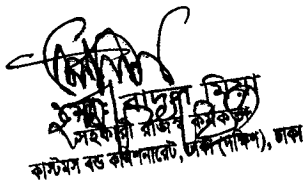 মিয়া
সহকারী রাজস্ব কর্মকর্তা
কাস্টমস বন্ড কমিশনারেট, ঢাকা (দক্ষিণ), ঢাকা